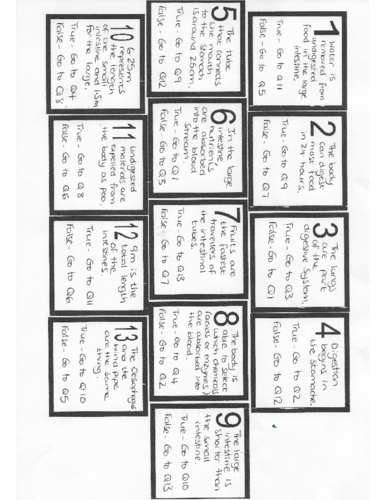 1 Water is
removed from
undigested
food in the large
intestine.
True - Go to Q11
False - Go to Q5
2 The body
can digest
most food
in 24 hours.
True - Go to Q9
False - Go to Q7
3 The lungs
are part
of the
digestive system.
True - Go to Q3
False - Go to Q1
4 Digestion
begins in
the stomache.
True - Go to Q2
False - Go to Q12
5 The tube
that connects
the mouth
to the stomach
is around 25cm.
True - Go to Q9
False - Go to Q12
6 In the large
intestine,
nutrients
are absorbed
into the blood
stream.
True - Go to Q1
False - Go to Q3
7 Fruits are
the fastest
travellers of
the intestinal
tubes.
True - Go to Q13
False - Go to Q7
8 The body is
able to select
which chemicals
(acids or enzymes)
are absorbed into
the blood.
True - Go to Q4
False - Go to Q2
9 The large
intestine is
shorter than
the small
intestine.
True - Go to Q10
False - Go to Q13
10 6.25m
represents
the length
of the small
intestine and 1.5m
for the large.
True - Go to Q4
False - Go to Q8
11 Undigested
materials are
expelled from
the body as poo.
True - Go to Q8
False - Go to Q6
12 9m is the
total length
of the
intestines.
True - Go to Q11
False - Go to Q6
13 The Oesophagus
and the
wind pipe
are the same
thing.
True - Go to Q10
False - Go to Q5